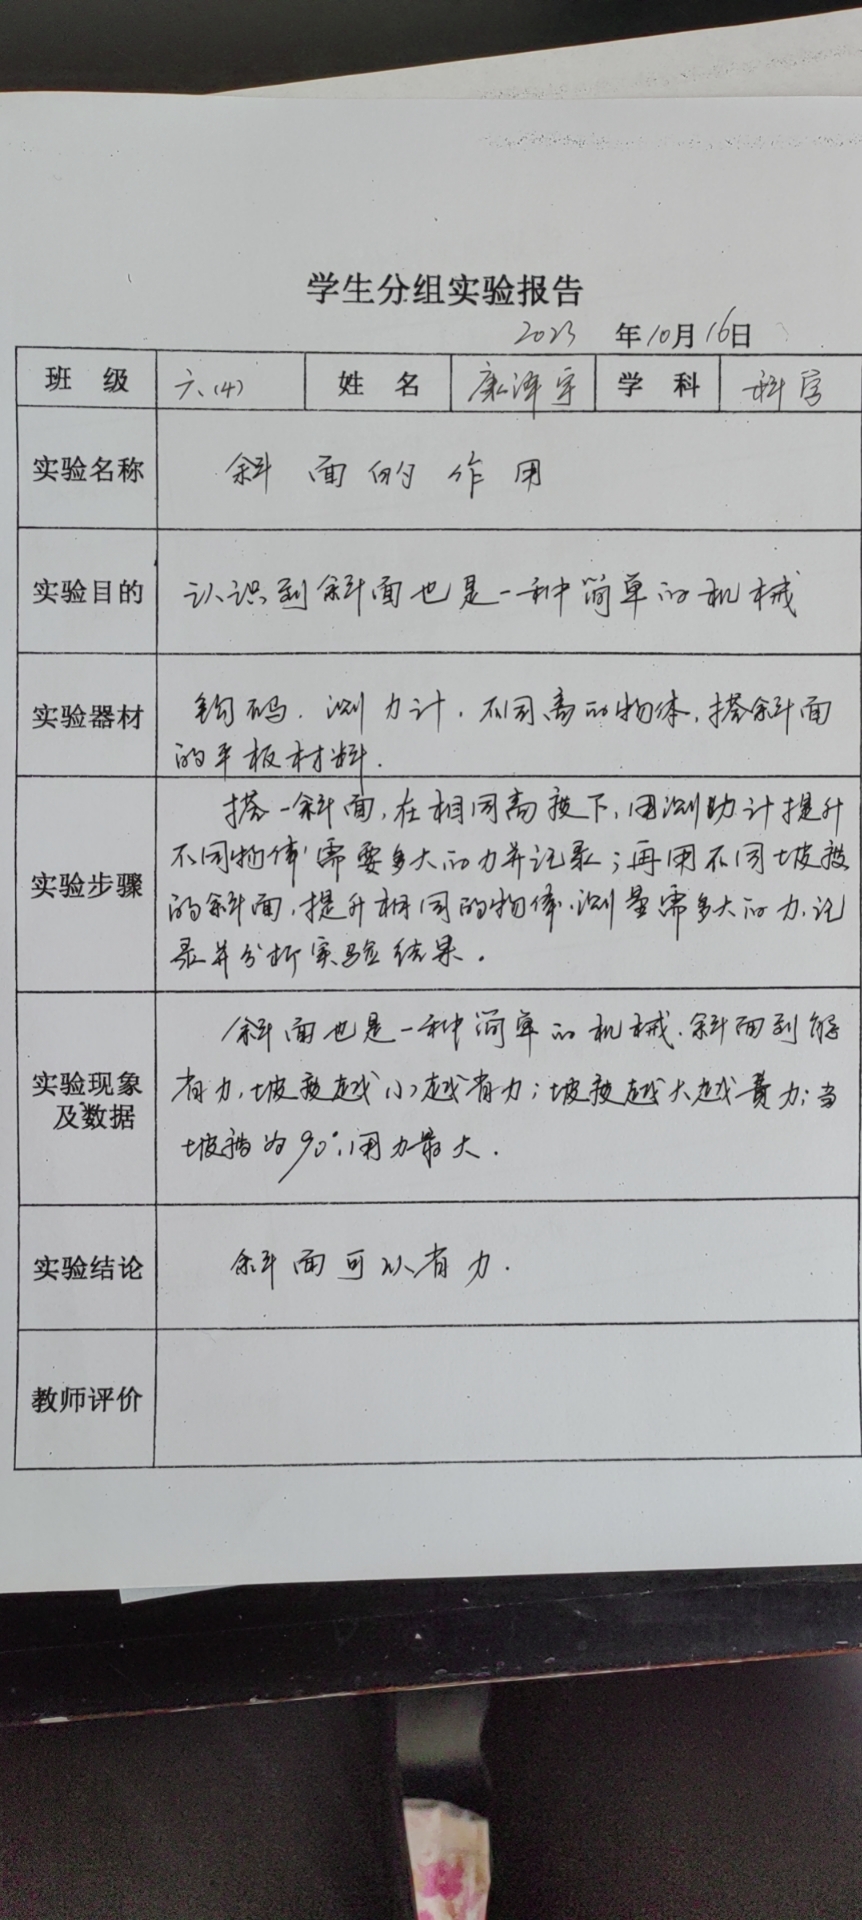 学生分组实验报告
2023 年10月16日
班 级 六.(4) 姓 名 康泽宇 学 科 科学
实验名称 斜面的作用
实验目的 认识到斜面也是一种简单的机械
实验器材 钩码.测力计.不同高的物体,搭斜面
的平板材料.
实验步骤 搭一斜面,在相同高度下,用测助计提升
不同物体需要多大的力并记录;再用不同坡度
的斜面,提升相同的物体.测量需多大的力.记
录并分析实验结果.
实验现象及数据 斜面也是一种简单的机械.斜面到能
省力,坡度越小越省力;坡度越大越费力;当
坡为90°,用力最大.
实验结论 斜面可以省力.
教师评价